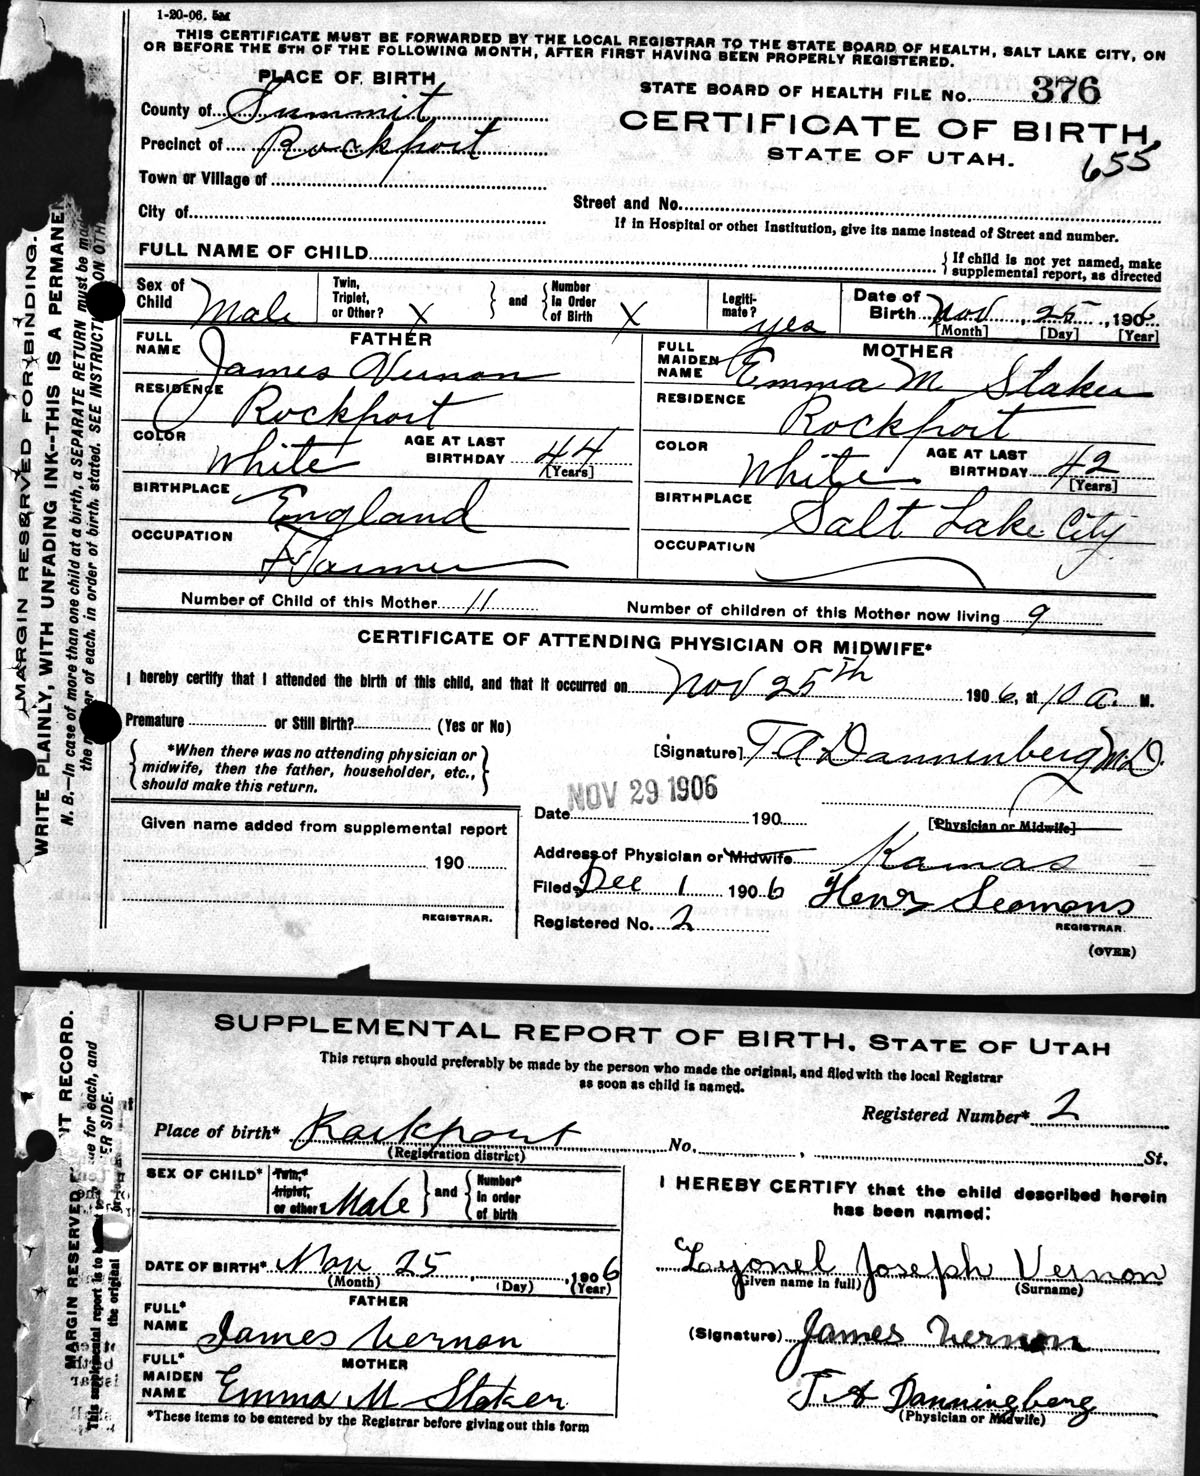 1-20-06. 5M
THIS CERTIFICATE MUST BE FORWARDED BY THE LOCAL REGISTRAR TO THE STATE BOARD OF HEALTH, SALT LAKE CITY, ON
OR BEFORE THE 5TH OF THE FOLLOWING MONTH, AFTER FIRST HAVING BEEN PROPERLY REGISTERED.
PLACE OF BIRTH
STATE BOARD OF HEALTH FILE No. 376
County of Summit
CERTIFICATE OF BIRTH,
Precinct of Rockport
STATE OF UTAH.
655
Town or Village of
Street and No.
City of
If in Hospital or other Institution, give its name instead of Street and number.
FULL NAME OF CHILD
{If child is not yet named, make
supplemental report, as directed
Sex of Child Male
Twin, Triplet, or Other? X } and { Number In Order of Birth X
Legitimate? yes
Date of Birth Nov 25, 1906
[Month] [Day] [Year]
FATHER
FULL NAME James Vernon
RESIDENCE Rockport
COLOR White AGE AT LAST BIRTHDAY 44
[Years]
BIRTHPLACE England
OCCUPATION Farmer
MOTHER
FULL MAIDEN NAME Emma M Staker
RESIDENCE Rockport
COLOR White AGE AT LAST BIRTHDAY 42
[Years]
BIRTHPLACE Salt Lake City
OCCUPATION
Number of Child of this Mother 11 Number of children of this Mother now living 9
CERTIFICATE OF ATTENDING PHYSICIAN OR MIDWIFE*
I hereby certify that I attended the birth of this child, and that it occurred on Nov 25th 1906, at 10 a. M.
Premature or Still Birth? (Yes or No)
{ *When there was no attending physician or
midwife, then the father, householder, etc.,
should make this return. }
[Signature] T A Dannenberg M.D.
NOV 29 1906
Date 190
[Physician or Midwife]
Given name added from supplemental report
190
REGISTRAR.
Address of Physician or Midwife Kamas
Filed Dec 1 1906 Henry Seamons
REGISTRAR.
Registered No. 2
(OVER)
MARGIN RESERVED FOR BINDING.
WRITE PLAINLY, WITH UNFADING INK--THIS IS A PERMANE
N. B.—In case of more than one child at a birth, a SEPARATE RETURN must be
of each, in order of birth, stated. SEE INSTRUCT ON OTH
SUPPLEMENTAL REPORT OF BIRTH, STATE OF UTAH
This return should preferably be made by the person who made the original, and filed with the local Registrar
as soon as child is named.
Registered Number* 2
Place of birth* Rockport No. , St.
(Registration district)
SEX OF CHILD* Twin,* triplet, or other Male } and { Number* In order of birth
DATE OF BIRTH* Nov 25, 1906
(Month) (Day) (Year)
FATHER
FULL* NAME James Vernon
MOTHER
FULL* MAIDEN NAME Emma M Staker
*These items to be entered by the Registrar before giving out this form
I HEREBY CERTIFY that the child described herein
has been named:
Lyonel Joseph Vernon
(Given name in full) (Surname)
(Signature) James Vernon
T A Danningberg
(Physician or Midwife)
MARGIN RESERVED
NT RECORD.
This supplemental report is to be
ue for each, and
the original
ER SIDE.